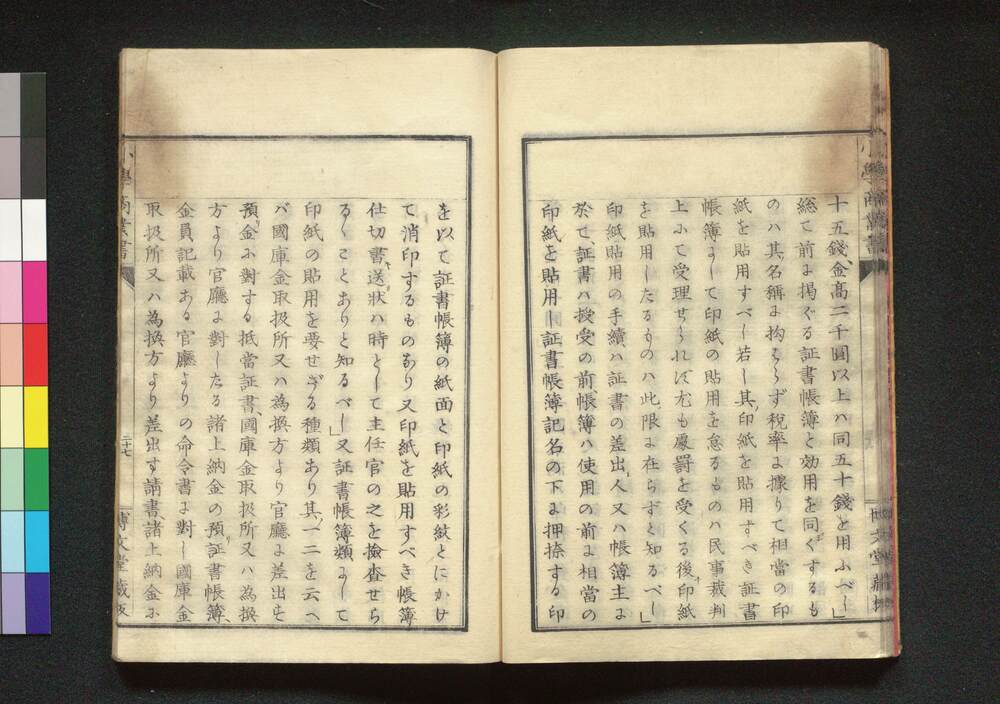 十五錢金髙二千圓以上ハ同五十錢を用ふべし」
総て前に掲ぐる証書帳簿と効用を同くするも
のハ其名稱に拘らず税率に據りて相當の印
紙を貼用すべし若し其印紙を貼用すべき証書
帳簿にして印紙の貼用を怠るものハ民事裁判
上にて受理せられず尤も處罰を受くる後印紙
を貼用したるものハ此限に在らずと知るべし」
印紙貼用の手續ハ証書の差出人又ハ帳簿主に
於て証書ハ授受の前帳簿ハ使用の前に相當の
印紙を貼用し証書帳簿記名の下に押捺する印
を以て証書帳簿の紙面と印紙の彩紋とにかけ
て消印するものなり又印紙を貼用すべき帳簿
仕切書、送狀ハ時として主任官の之を撿査せら
るゝことありと知るべし」又証書帳簿類にして
印紙の貼用を要せざる種類あり其一二を云へ
バ國庫金取扱所又ハ為換方より官廳に差出す
預金に對する抵當証書、國庫金取扱所又ハ為換
方より官廳に對したる諸上納金の預証書帳簿、
金員記載ある官廳よりの命令書に對し國庫金
取扱所又ハ為換方より差出す請書諸上納金に
小學商業書
二十七
博文堂藏板